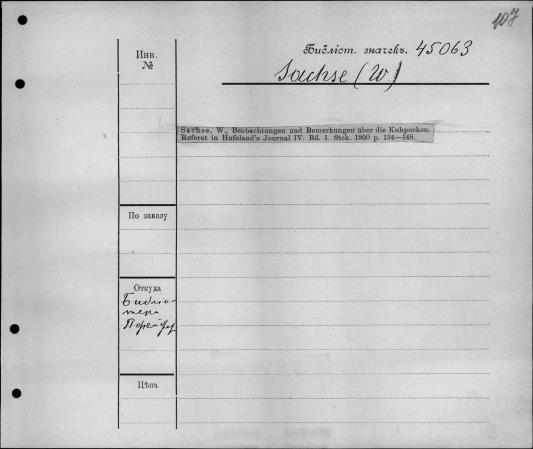 107
Библіот. значекъ. 45063
Sachse (W.)
Инв.
№
Sachse, W., Beobachtungen und Bemerkungen über die Kuhpocken.
Referat in Hufeland's Journal IV. Bd. 1. Stck. 1800 p. 134—148.
По заказу
Откуда
Библіо-
тека
Цѣна